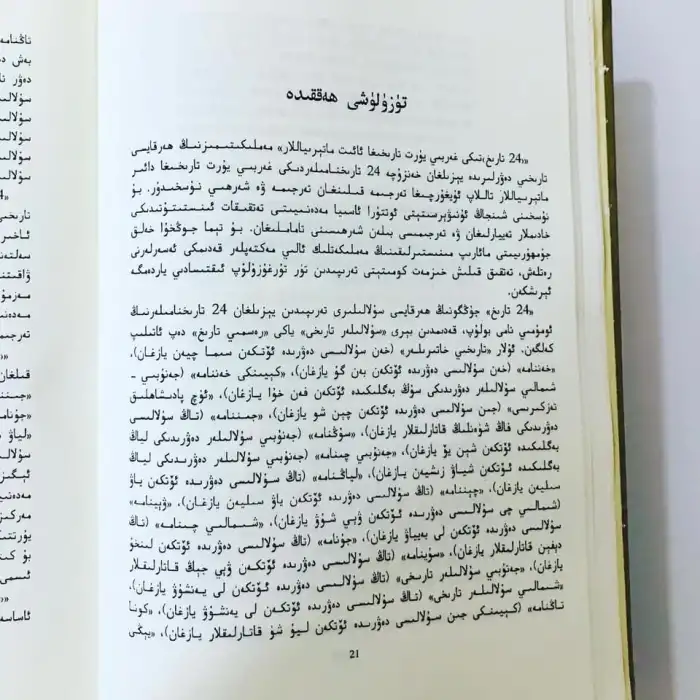 تۈزۈلۈشى ھەققىدە
«24 تارىخ»تىكى غەربىي يۇرت تارىخىغا ئائىت ماتېرىياللار» مەملىكىتىمىزنىڭ ھەرقايسى
تارىخىي دەۋرلىرىدە يېزىلغان خەنزۇچە 24 تارىخنامىلەردىكى غەربىي يۇرت تارىخىغا دائىر
ماتېرىياللار تاللاپ ئۇيغۇرچىغا تەرجىمە قىلىنغان تەرجىمە ۋە شەرھىي نۇسخىدۇر. بۇ
نۇسخىنى شىنجاڭ ئۇنىۋېرسىتېتى ئوتتۇرا ئاسىيا مەدەنىيىتى تەتقىقات ئىنستىتۇتىدىكى
خادىملار تەييارلىغان ۋە تەرجىمىسى بىلەن شەرھىسىنى تاماملىغان. بۇ تېما جۇڭخۇا خەلق
جۇمھۇرىيىتى مائارىپ مىنىستىرلىقىنىڭ مەملىكەتلىك ئالىي مەكتەپلەر قەدىمكى ئەسەرلەرنى
رەتلەش، تەتقىق قىلىش خىزمەت كومىتېتى تەرىپىدىن تۈر تۇرغۇزۇلۇپ ئىقتىسادىي ياردەمگە
ئېرىشكەن.
«24 تارىخ» جۇڭگونىڭ ھەرقايسى سۇلالىلىرى تەرىپىدىن يېزىلغان 24 تارىخنامىلەرنىڭ
ئومۇمىي نامى بولۇپ، قەدىمدىن بېرى «سۇلالىلەر تارىخى» ياكى «رەسمىي تارىخ» دەپ ئاتىلىپ
كەلگەن. ئۇلار «تارىخىي خاتىرىلەر» (خەن سۇلالىسى دەۋرىدە ئۆتكەن سىما چيەن يازغان)،
«خەننامە» (خەن سۇلالىسى دەۋرىدە ئۆتكەن بەن گۇ يازغان)، «كېيىنكى خەننامە» (جەنۇبىي -
شىمالىي سۇلالىلەر دەۋرىدىكى سۇڭ بەگلىكىدە ئۆتكەن فەن خۇا يازغان)، «ئۈچ پادىشاھلىق
تەزكىرىسى» (جىن سۇلالىسى دەۋرىدە ئۆتكەن چېن شو يازغان)، «جىننامە» (تاڭ سۇلالىسى
دەۋرىدىكى فاڭ شۈەنلىڭ قاتارلىقلار يازغان)، «سۇڭنامە» (جەنۇبىي سۇلالىلەر دەۋرىدىكى لياڭ
بەگلىكىدە ئۆتكەن شېن يۆ يازغان)، «جەنۇبىي چىنامە» (جەنۇبىي سۇلالىلەر دەۋرىدىكى لياڭ
بەگلىكىدە ئۆتكەن شياۋ زىشيەن يازغان)، «لياڭنامە» (تاڭ سۇلالىسى دەۋرىدە ئۆتكەن ياۋ
سىليەن يازغان)، «چېننامە» (تاڭ سۇلالىسى دەۋرىدە ئۆتكەن ياۋ سىليەن يازغان)، «ۋېينامە»
(شىمالىي چى سۇلالىسى دەۋرىدە ئۆتكەن ۋېي شۇۋ يازغان)، «شىمالىي چىنامە» (تاڭ
سۇلالىسى دەۋرىدە ئۆتكەن لى بەيياۋ يازغان)، «جۇنامە» (تاڭ سۇلالىسى دەۋرىدە ئۆتكەن لىنخۇ
دېفېن قاتارلىقلار يازغان)، «سۈينامە» (تاڭ سۇلالىسى دەۋرىدە ئۆتكەن ۋېي جېڭ قاتارلىقلار
يازغان)، «جەنۇبىي سۇلالىلەر تارىخى» (تاڭ سۇلالىسى دەۋرىدە ئۆتكەن لى يەنشۇۋ يازغان)،
«شىمالىي سۇلالىلەر تارىخى» (تاڭ سۇلالىسى دەۋرىدە ئۆتكەن لى يەنشۇۋ يازغان)، «كونا
تاڭنامە» (كېيىنكى جىن سۇلالىسى دەۋرىدە ئۆتكەن ليۇ شۈ قاتارلىقلار يازغان)، «يېڭى
21